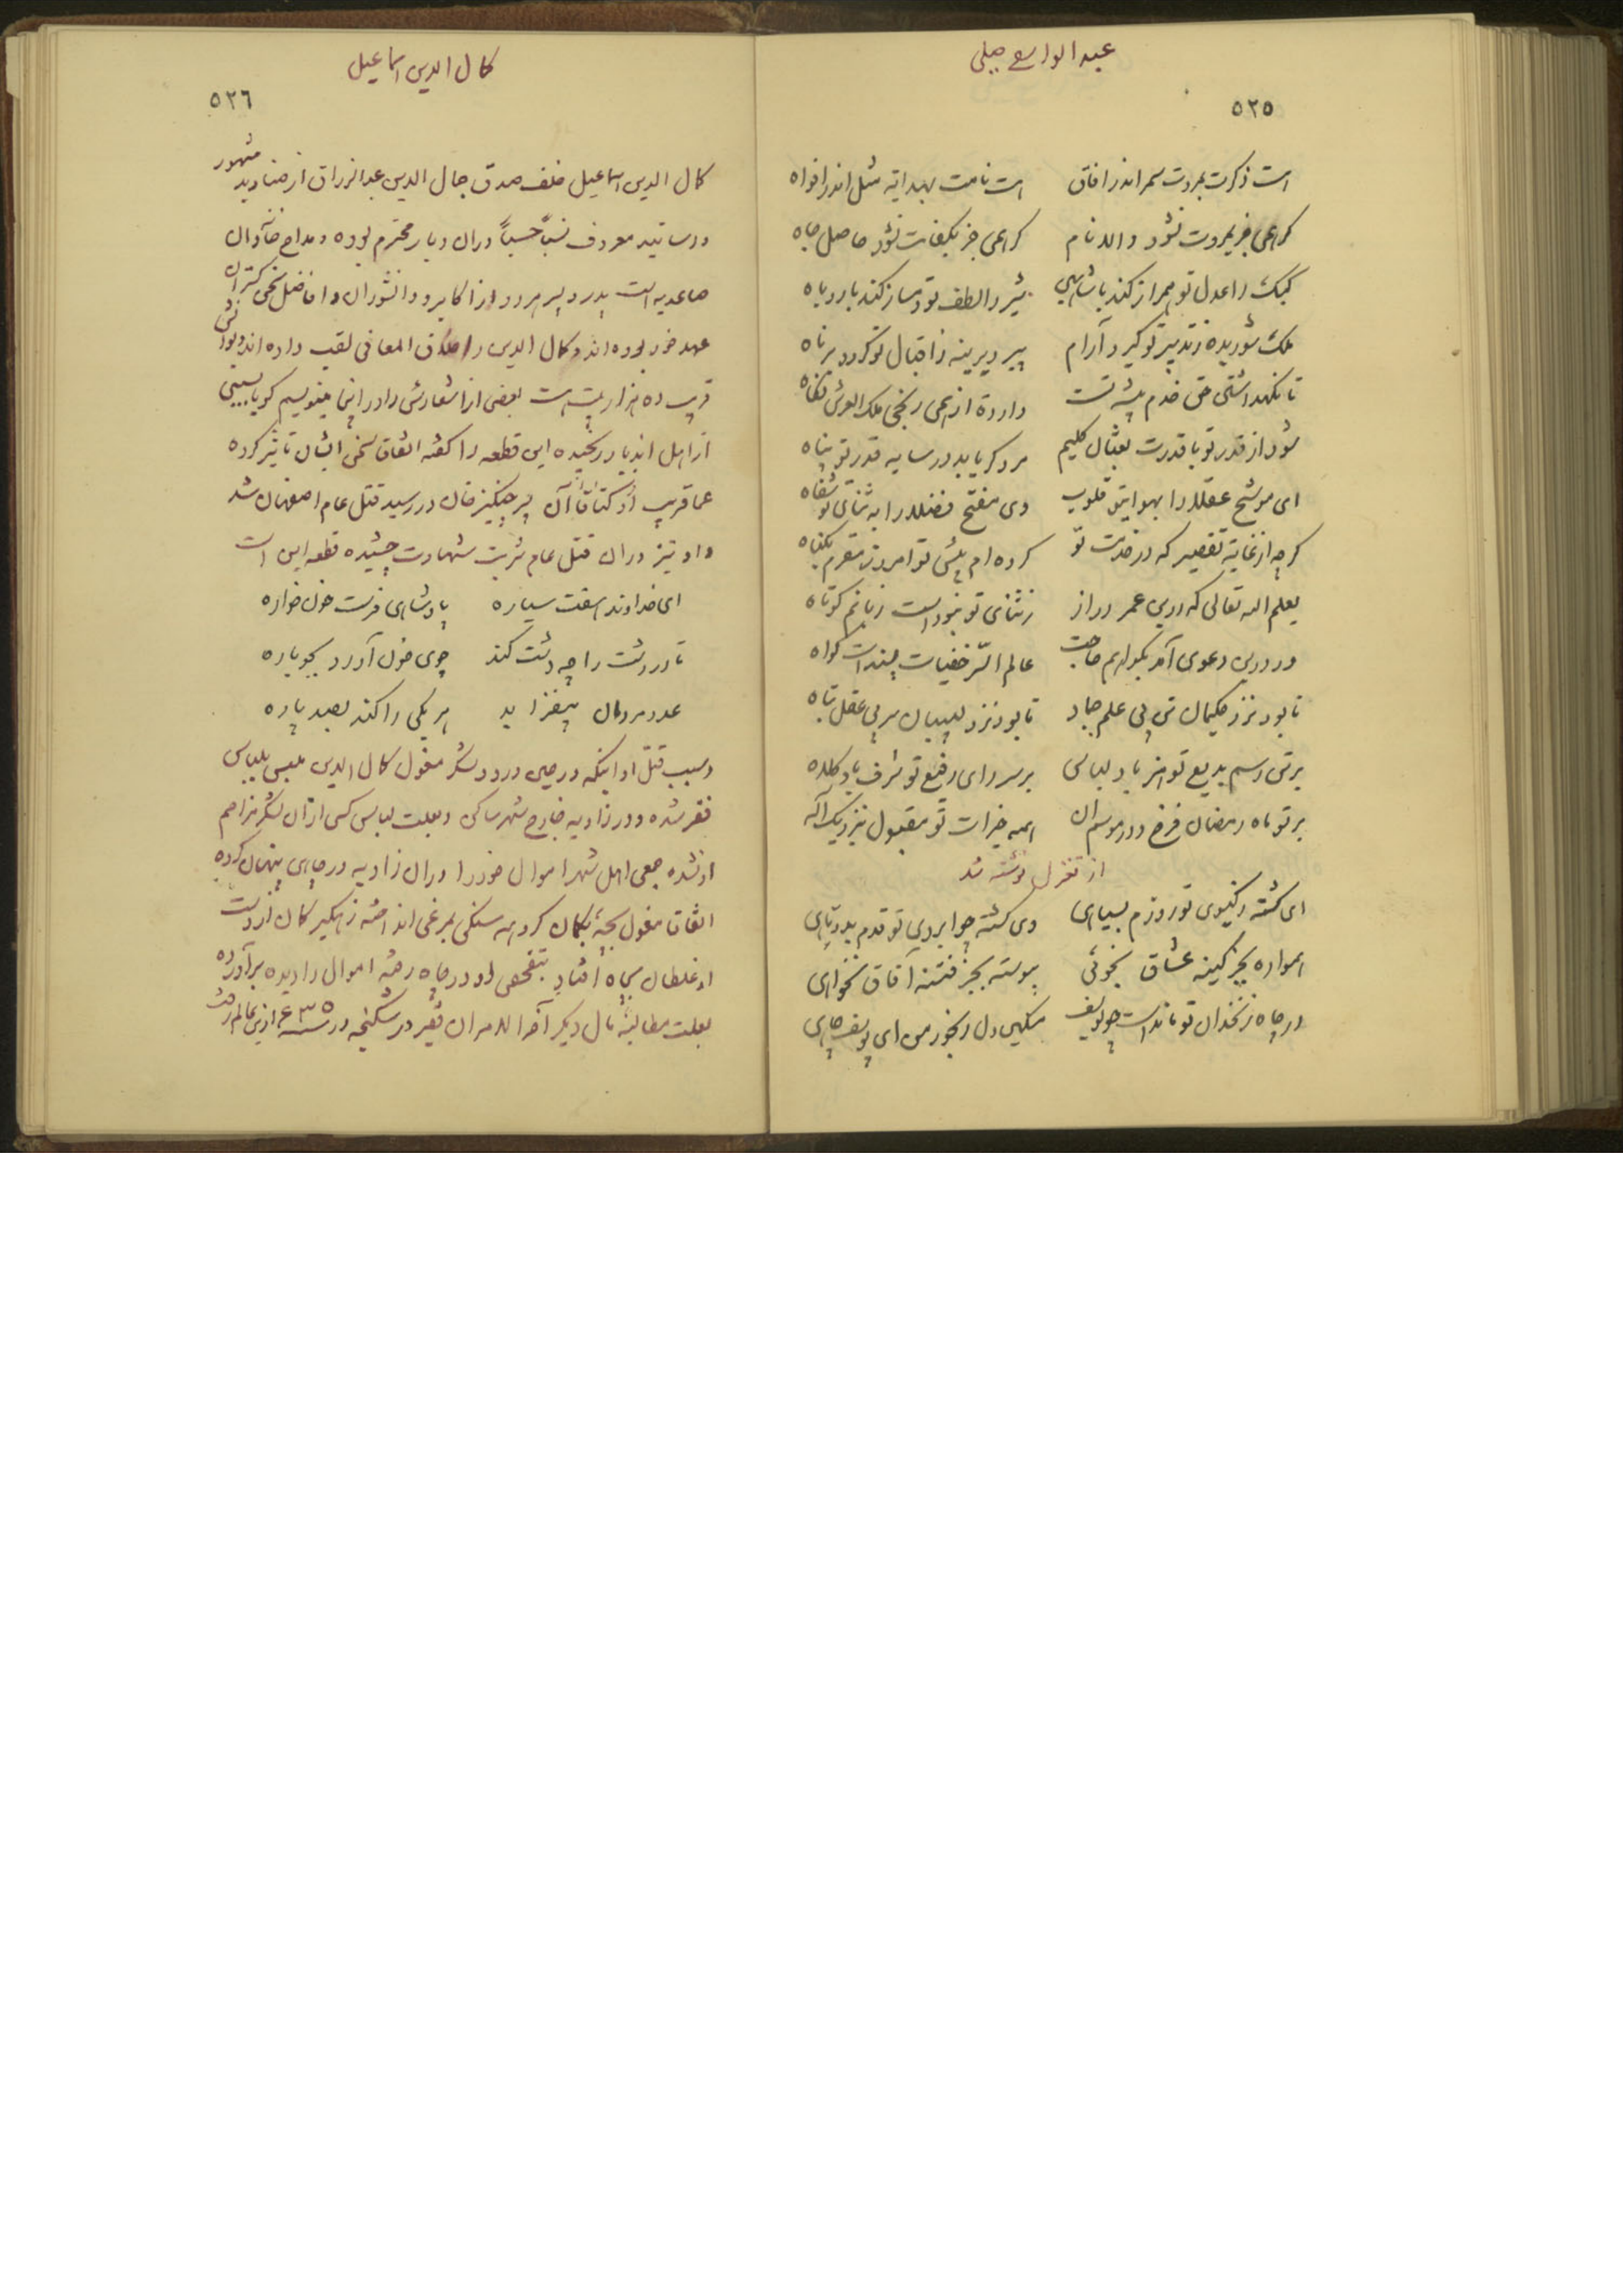 عبدالواسع جبلی
۵۲۵
است ذکرت بمروت سمر اندر آفاق    است نامت بهدایه مثل اندر افواه
نشود والا نام    حاصل جاه
کبک را عدل تو همراز کند با شاهین    شیر را لطف تو دمساز کند با روباه
ملک شوریده ز تدبیر تو گیرد آرام    پیر دیرینه ز اقبال تو گردد برناه
تا نگهداشتی حق خدم پیشه تست    دارد از همی ملک العرش نگاه
شود از قدر تو با قدرت کلیم    مرد کریابد در سایه قدر تو پناه
ای موشح عقلا را بهوای تو قلوب    وی مفتح فضلا را به ثنای تو شفاه
کرچه از غایة تقصیر که در خدمت تو    کرده ام پیش تو امروز مقرم بگناه
یعلم الله تعالی که درین عمر دراز    ز ثنای تو نبوده است زبانم کوتاه
ور درین دعوی آمد بگواهم حاجت    عالم السّر خفیات بسنده است گواه
تا بود نزد حکیمان تن بی علم جماد    تا بود نزد لبیبان سر بی عقل تباه
بر تن رسم بدیع تو هنر باد لباس    بر سر رای رفیع تو شرف باد کلاه
بر تو ماه رمضان فرخ و در موسم آن    همه خیرات تو مقبول بنزدیک اله
از تغزل نوشته شد
ای کشته ز کیسوی تو روزم بسیاهی    وی کشته چو ابروی تو قدم بدوتاهی
همواره بجز کینه عشاق نجوئی    پیوسته بجز فتنه آفاق نخواهی
در چاه زنخدان تو مانده است چو یوسف    مسکین دل رنجور من ای یوسف چاهی
کمال الدین اسماعیل
۵۲۶
کمال الدین اسماعیل خلف صدق جمال الدین عبدالرزاق از صنادید مشهور
و رساتید معروف نسباً حسباً در آن دیار محترم بوده و مداح خاندان
صاعدیه است پدر و پسر هر دو از اکابر و دانشوران و افاضل سخن گستران
عهد خود بوده اند و کمال الدین را خلاق المعانی لقب داده اند دیوانش
قریب ده هزار بیت است بعضی از اشعارش را در اینجا مینویسم کویا بسببی
از اهل آندیار رنجیده این قطعه را گفته اتفاق سخن ایشان تاثیر کرده
عماقریب اوکتاقاآن پسر چنگیز خان در رسید قتل عام اصفهان شد
و او نیز در آن قتل عام شربت شهادت چشیده قطعه این است
ای خداوند هفت سیاره    پادشاهی فرست خون خواره
تا در دشت را چو دشت کند    جوی خون آورد بجوباره
عدد مردمان بیفزاید    هر یکی را کند بصد پاره
و سبب قتل او اینکه در حین ورود لشکر مغول کمال الدین ملبس بلباس
فقر شده و در زاویه خارج شهر ساکن و بعلت لباس کسی از آن لشکر مزاحم
او نشده جمعی اهل شهر اموال خود را در آن زاویه در چاهی پنهان کرده
اتفاق مغول بچهٔ بکمان کروهه سنگی بمرغی انداخته زهگیر کمان از دست
او غلطان بچاه افتاد بتفحص او در چاه رفته اموال را دیده برآورده
بعلت مطالبهٔ مال دیگر آخر الامر آن فقیر در شکنجه در سنه ۶۳۵ ازین عالم رفت